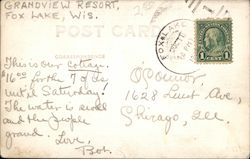 GRANDVIEW RESORT,
FOX LAKE, WIS.
POST CARD
CORRESPONDENCE
This is our cottage.
1600 for the 7 of us
until Saturday!
The water is swell
and the people
grand. Love,
Bob.
FOX LAKE
1 CENT 1
O'Connor,
1628 Ave,
Chicago, Ill.